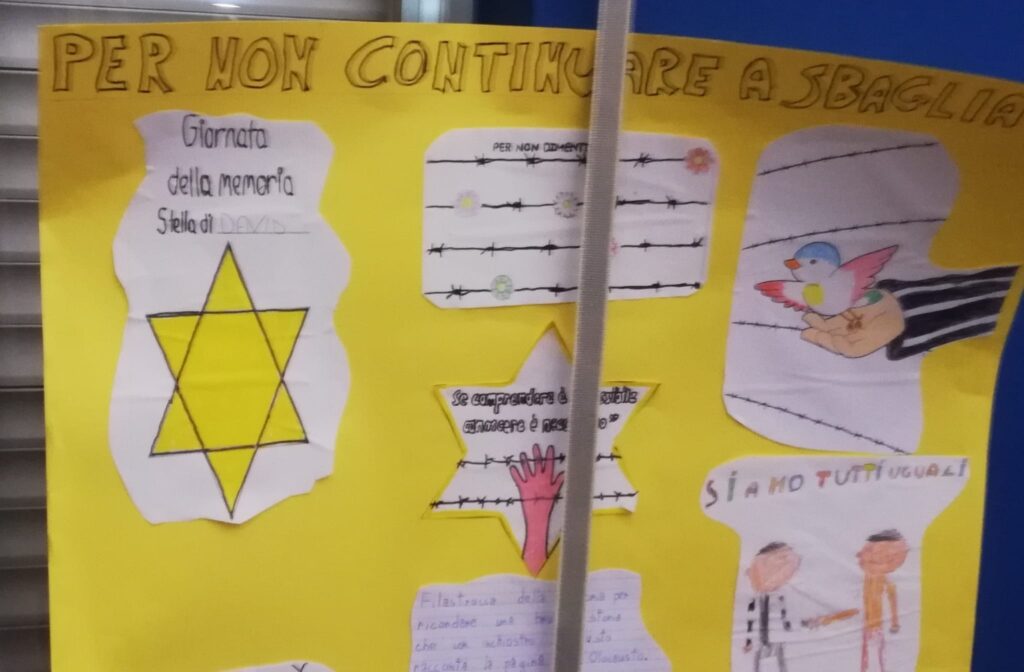 PER NON CONTINUARE A SBAGLIA
Giornata
della memoria
Stella di DEVID
PER NON DIMENT
Se comprendere è
conoscere è
SIAMO TUTTI UGUALI
Filastrocca della per
ricordare una storia
che con inchiostro
racconta la pagina Olocausto.